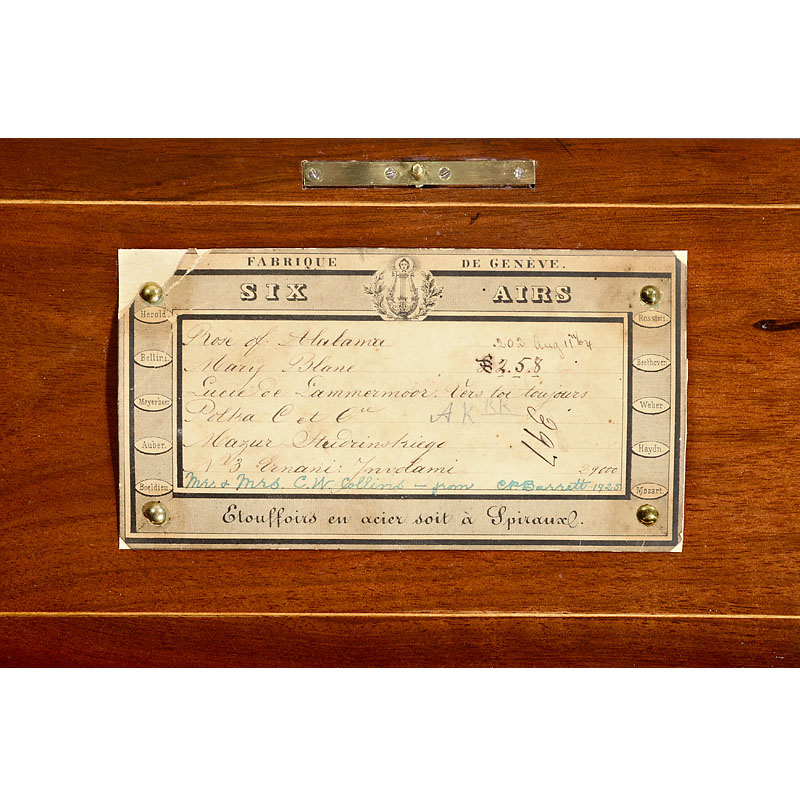 FABRIQUE DE GENÈVE.
SIX AIRS
Herold
Bellini
Meyerbeer
Auber.
Boeldieu
Rossini
Beethoven
Weber
Haydn
Mozart
Rose of Alabama 202 Aug 11th 64
Mary Blane 258
Lucie de Lammermoor. Vers toi toujours
Polka C et Cie AK KK
397
Mazur
No 3 Ernani: Involami 29000
Mr. & Mrs. C.W. Collins – from Barrett 1925
Etouffoirs en acier soit à Spiraux.